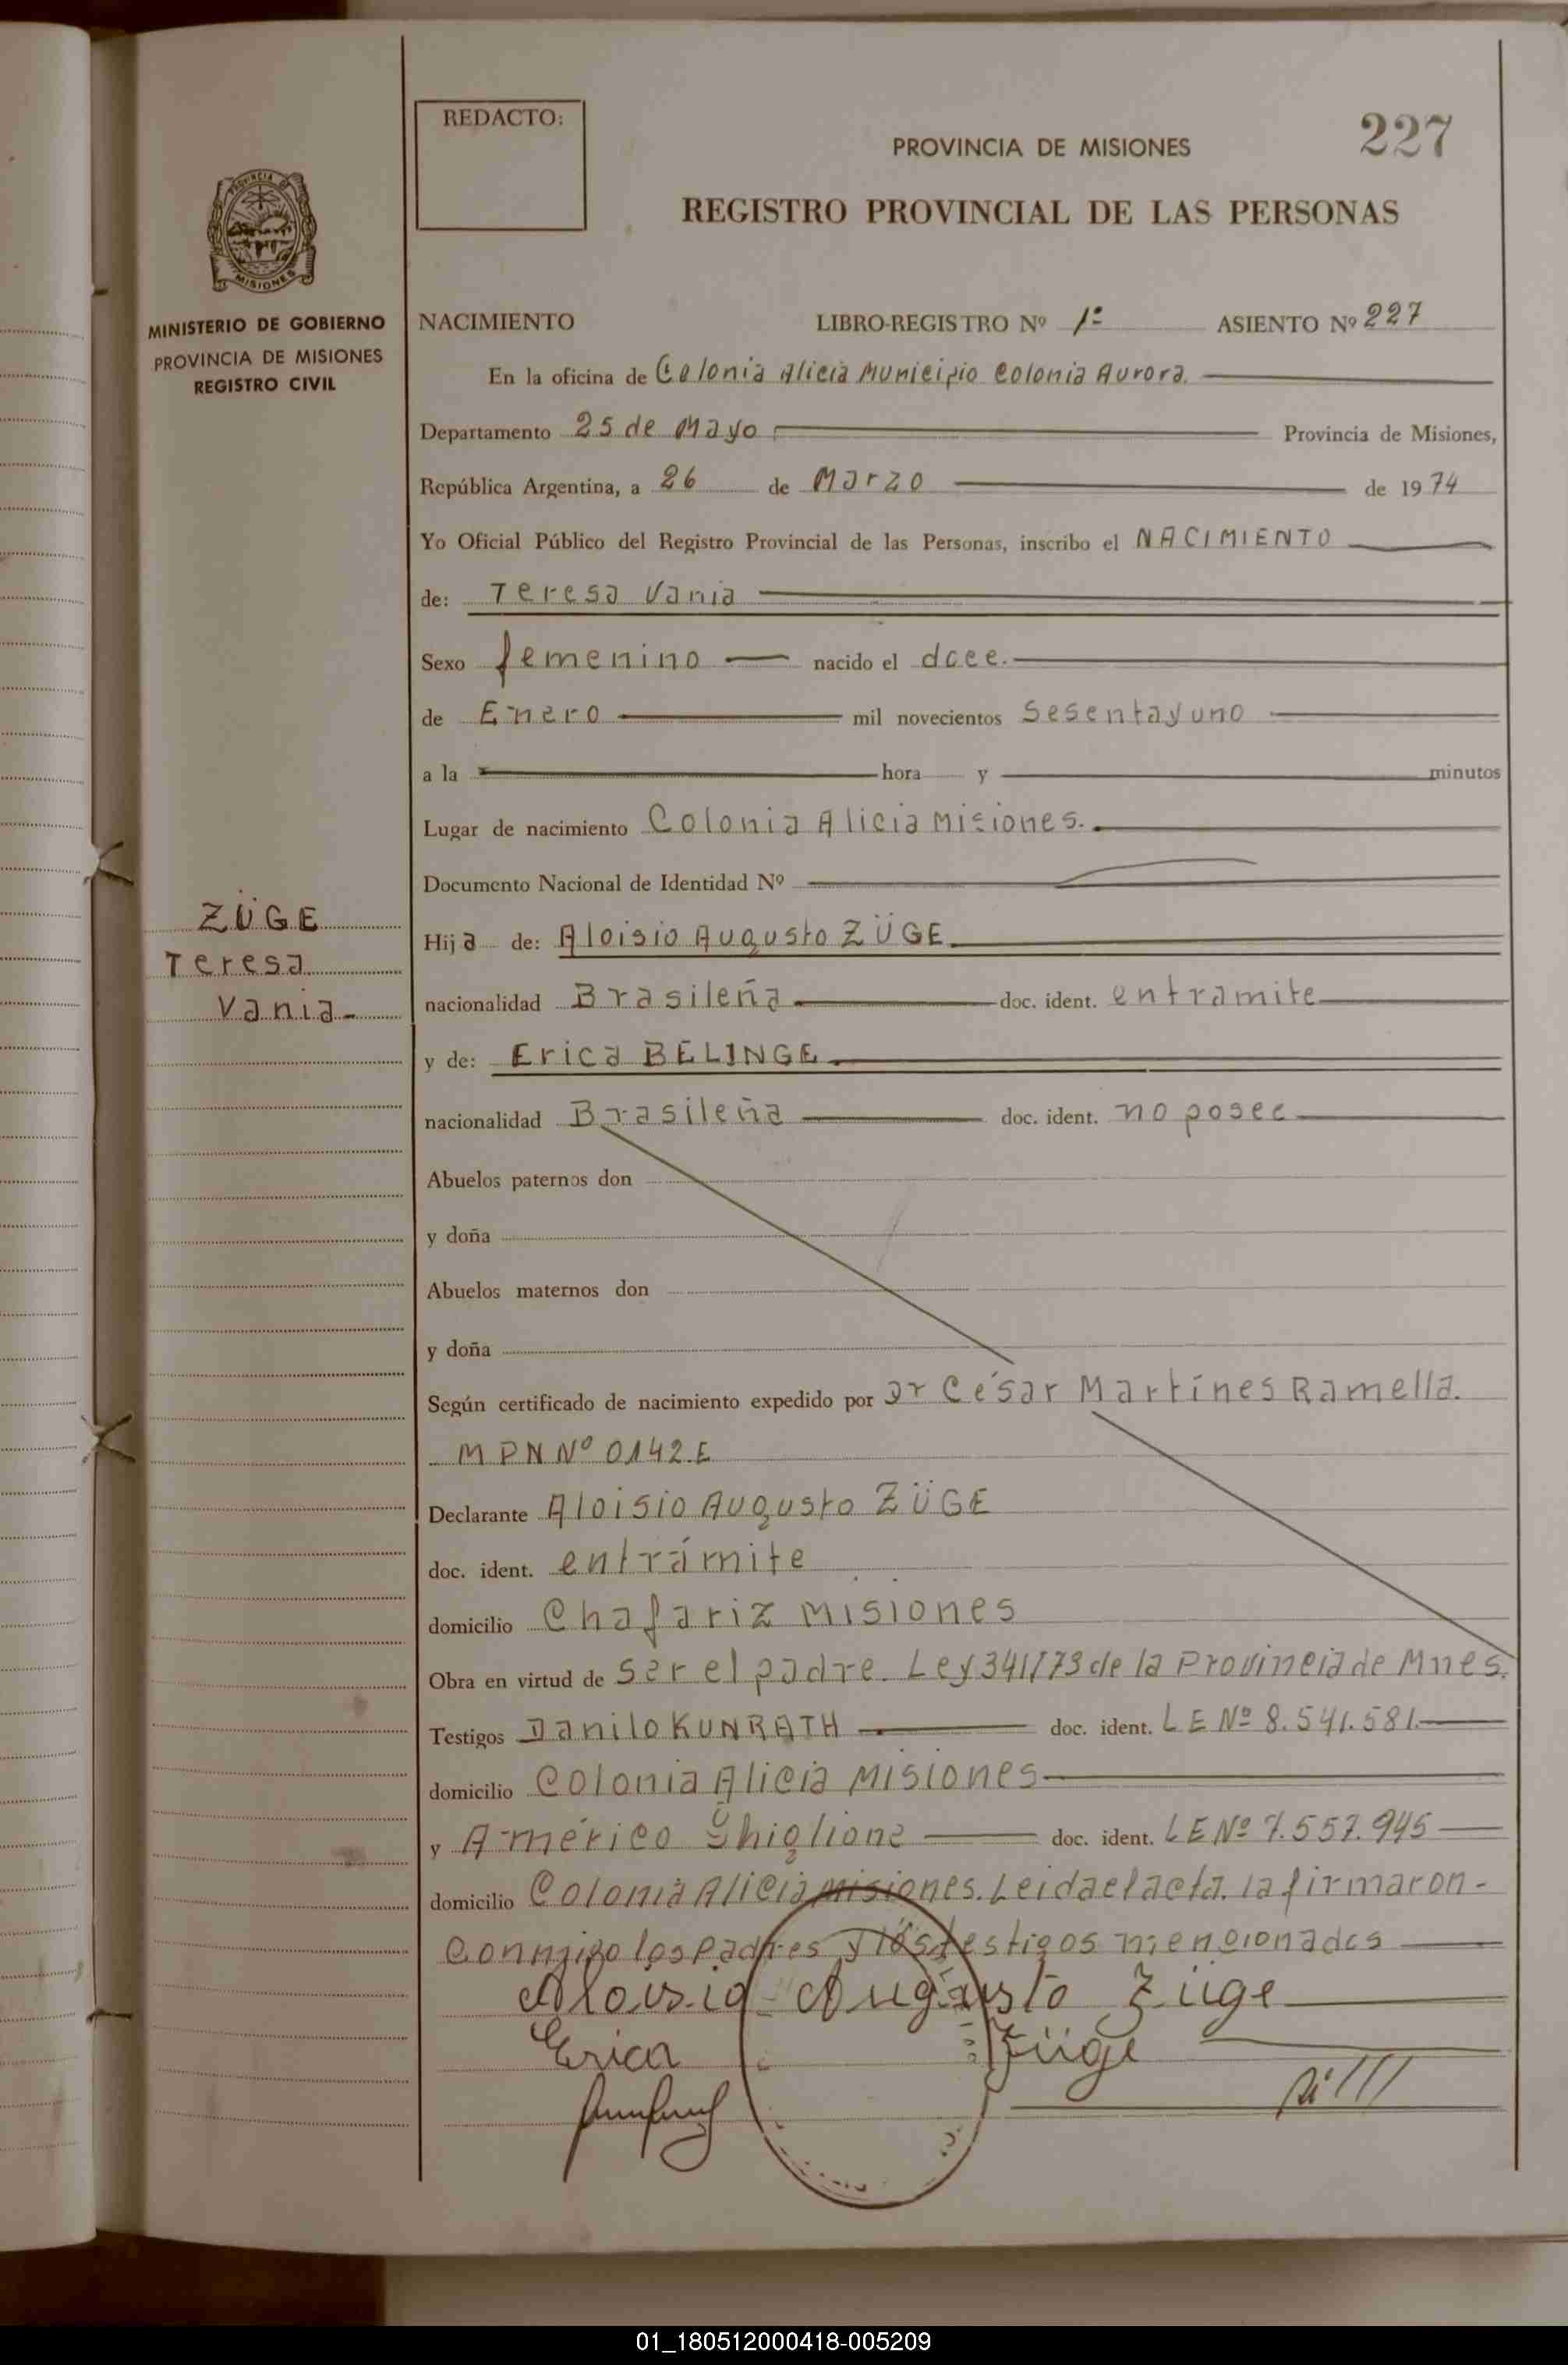 REDACTO:
227
PROVINCIA DE MISIONES
REGISTRO PROVINCIAL DE LAS PERSONAS
PROVINCIA DE
MISIONES
MINISTERIO DE GOBIERNO
PROVINCIA DE MISIONES
REGISTRO CIVIL
NACIMIENTO LIBRO-REGISTRO Nº 1º ASIENTO Nº 227
En la oficina de Colonia Alicia Municipio Colonia Aurora.
Departamento 25 de Mayo Provincia de Misiones,
República Argentina, a 26 de Marzo de 1974
Yo Oficial Público del Registro Provincial de las Personas, inscribo el NACIMIENTO
de: Teresa Vania
Sexo femenino nacido el doce.
de Enero mil novecientos Sesentayuno
a la hora y minutos
Lugar de nacimiento Colonia Alicia Misiones.
Documento Nacional de Identidad Nº
ZÜGE
Teresa
Vania
Hija de: Aloisio Augusto ZÜGE
nacionalidad Brasileña doc. ident. entramite
y de: Erica BELINGE
nacionalidad Brasileña doc. ident. no posee
Abuelos paternos don
y doña
Abuelos maternos don
y doña
Según certificado de nacimiento expedido por Dr César Martínes Ramella.
MPN Nº 0142.E
Declarante Aloisio Augusto ZÜGE
doc. ident. entrámite
domicilio Chafariz Misiones
Obra en virtud de ser el padre. Ley 341/73 de la Provincia de Mnes.
Testigos Danilo KUNRATH doc. ident. LE Nº 8.541.581.
domicilio Colonia Alicia Misiones
y Américo Ghiglione doc. ident. LE Nº 7.557.945
domicilio Colonia Alicia Misiones. Leida el acta. la firmaron-
Conmigo los Padres y los testigos mencionados
Aloisio Augusto Züge
Erica Züge
01_180512000418-005209